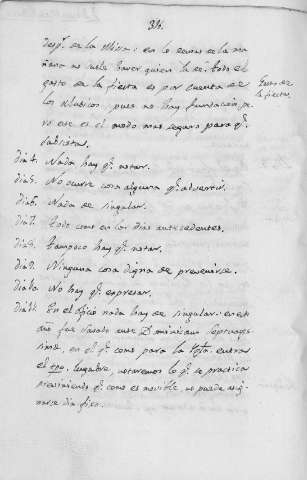 314.
desp.s de la Missa: en lo demas de la ma
ñana no suele haver quien la dé. todo el
gasto de la fiesta es por cuenta de
los Musicos, pues no hay fundacion, pe
ro este es el modo mas seguro para q.e
subsista.
Gasto de
la fiesta.
dia 4. Nada hay q.e notar.
dia 5. No ocurre cosa alguna q.e advertir.
dia 6. Nada de singular.
dia 7. todo como en los dias antecedentes.
dia 8. tampoco hay q.e notar.
dia 9. Ninguna cosa digna de prevenirse.
dia 10. No hay q.e expresar.
dia 11. En el oficio nada hay de singular: en este
año fue Sabado ante Dominicam Septuages
sima, en el q.e como para la Ygla. entra
el tpo. lugubre, notaremos lo q.e se practica
previniendo q.e como es movible no puede asig
narse dia fixo.